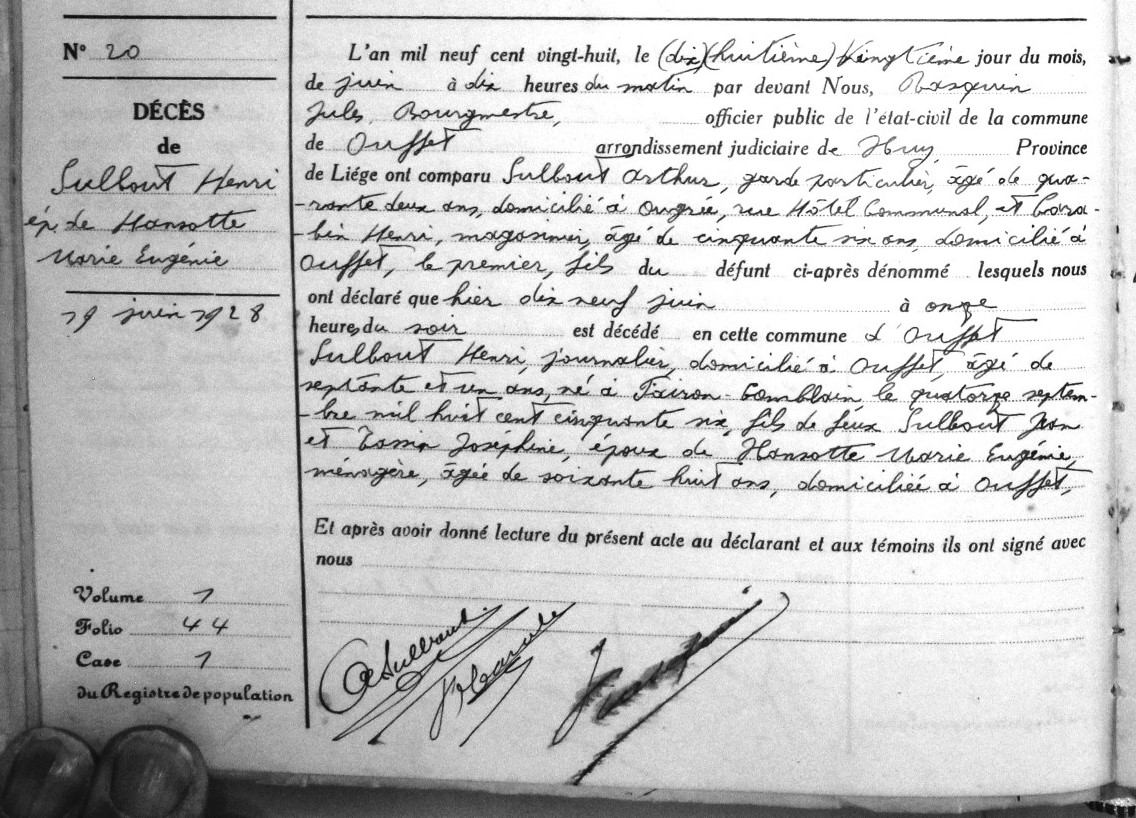 N° 20
DÉCÈS
de
Sulbout Henri
ép. de Hansotte
Marie Eugénie
19 juin 1928
Volume 1
Folio 44
Case 1
du Registre de population
L'an mil neuf cent vingt-huit, le (dix)(huitième) vingtième jour du mois,
de juin à dix heures du matin par devant Nous, Rasquin
Jules, Bourgmestre, officier public de l'état-civil de la commune
de Ouffet arrondissement judiciaire de Huy, Province
de Liége ont comparu Sulbout Arthur, garde particulier, âgé de qua-
-rante deux ans, domicilié à Ougrée, rue Hôtel Communal, et Cara-
-bin Henri, magasinier, âgé de cinquante six ans, domicilié à
Ouffet, le premier, fils du défunt ci-après dénommé lesquels nous
ont déclaré que hier dix neuf juin à onze
heures du soir est décédé en cette commune d'Ouffet
Sulbout Henri, journalier, domicilié à Ouffet, âgé de
septante et un ans, né à Fairon-Comblain le quatorze septem-
-bre mil huit cent cinquante six, fils de feux Sulbout Jean
et Tassin Joséphine, époux de Hansotte Marie Eugénie,
ménagère, âgée de soixante huit ans, domiciliée à Ouffet,
Et après avoir donné lecture du présent acte au déclarant et aux témoins ils ont signé avec
nous
A Sulbout